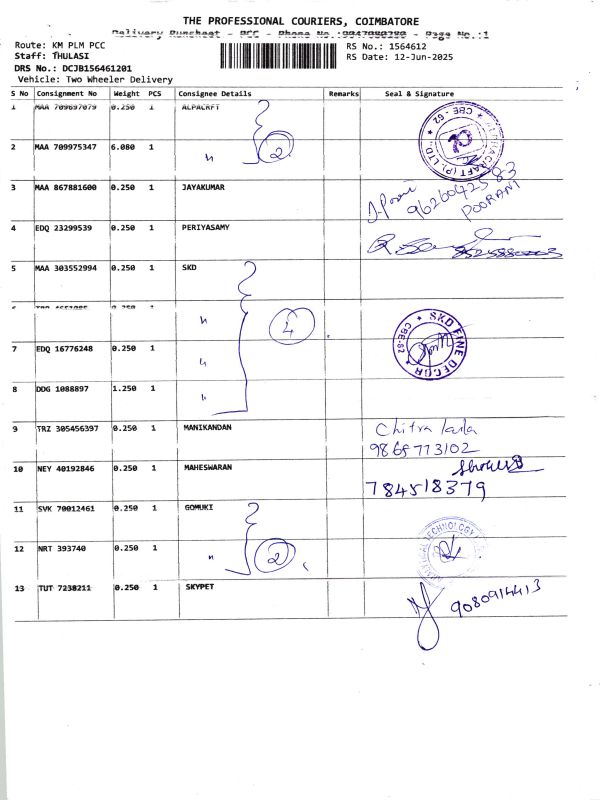 THE PROFESSIONAL COURIERS, COIMBATORE
Delivery Runsheet - PCC - Phone No.: - Page No.:1
Route: KM PLM PCC
RS No.: 1564612
Staff: THULASI
RS Date: 12-Jun-2025
DRS No.: DCJB156461201
Vehicle: Two Wheeler Delivery
S No Consignment No Weight PCS Consignee Details Remarks Seal & Signature
1 MAA 709697079 0.250 1 ALPACRFT
2 MAA 709975347 6.080 1 " 2
3 MAA 867881600 0.250 1 JAYAKUMAR
9626042583
POORANI
4 EDQ 23299539 0.250 1 PERIYASAMY
5 MAA 303552994 0.250 1 SKD
" 4
SKD FINE DECOR
CBE-62
7 EDQ 16776248 0.250 1 "
8 DDG 1088897 1.250 1 "
9 TRZ 305456397 0.250 1 MANIKANDAN
Chitra
9865773102
10 NEY 40192846 0.250 1 MAHESWARAN
784518379
11 SVK 70012461 0.250 1 GOMUKI
12 NRT 393740 0.250 1 " 2
TECHNOLOGY
13 TUT 7238211 0.250 1 SKYPET
9080914413